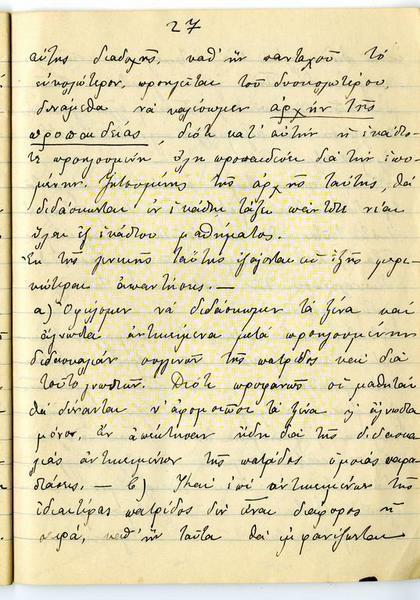 27
αὐτης διαδοχῆς, καθ' ἣν πανταχοῦ τὸ
εὐκολώτερον, προηγεῖται τοῦ δυσκολωτέρου,
δυνάμεθα νὰ καλέσωμεν ἀρχὴν τῆς
προπαιδείας, διότι κατ' αὐτὴν ἡ ἑκάστο-
τε προηγουμένη ὕλη προπαιδεύει διὰ τὴν ἑπο-
μένην. τῆς ἀρχῆς ταύτης, θὰ
διδάσκωνται ἐν ἑκάστῃ τάξει πάντοτε νέαι
ὕλαι ἐξ ἑκάστου μαθήματος.
Ἐκ τῆς γενικῆς ταύτης ἐξάγονται αἱ ἑξῆς μερι-
κώτεραι ἀπαιτήσεις. —
α) Ὀφείλομεν νὰ διδάσκωμεν τὰ ξένα καὶ
ἄγνωστα ἀντικείμενα μετὰ προηγουμένην
διδασκαλίαν συγγενῶν τῆς πατρίδος καὶ διὰ
τοῦτο γνωστῶν. Διότι προφανῶς οἱ μαθηταὶ
θὰ δύνανται ν' ἀφομοιῶσι τὰ ξένα ἢ ἄγνωστα
μόνον, ἂν ἀπέκτησαν ἤδη διὰ τῆς διδασκα-
λίας ἀντικειμένων τῆς πατρίδος ὁμοίας παρα-
στάσεις. — β) Καὶ ἐπὶ ἀντικειμένων τῆς
ἰδιαιτέρας πατρίδος δὲν εἶναι διάφορος ἡ
σειρά, καθ' ἣν ταῦτα θὰ ἐμφανίζωνται